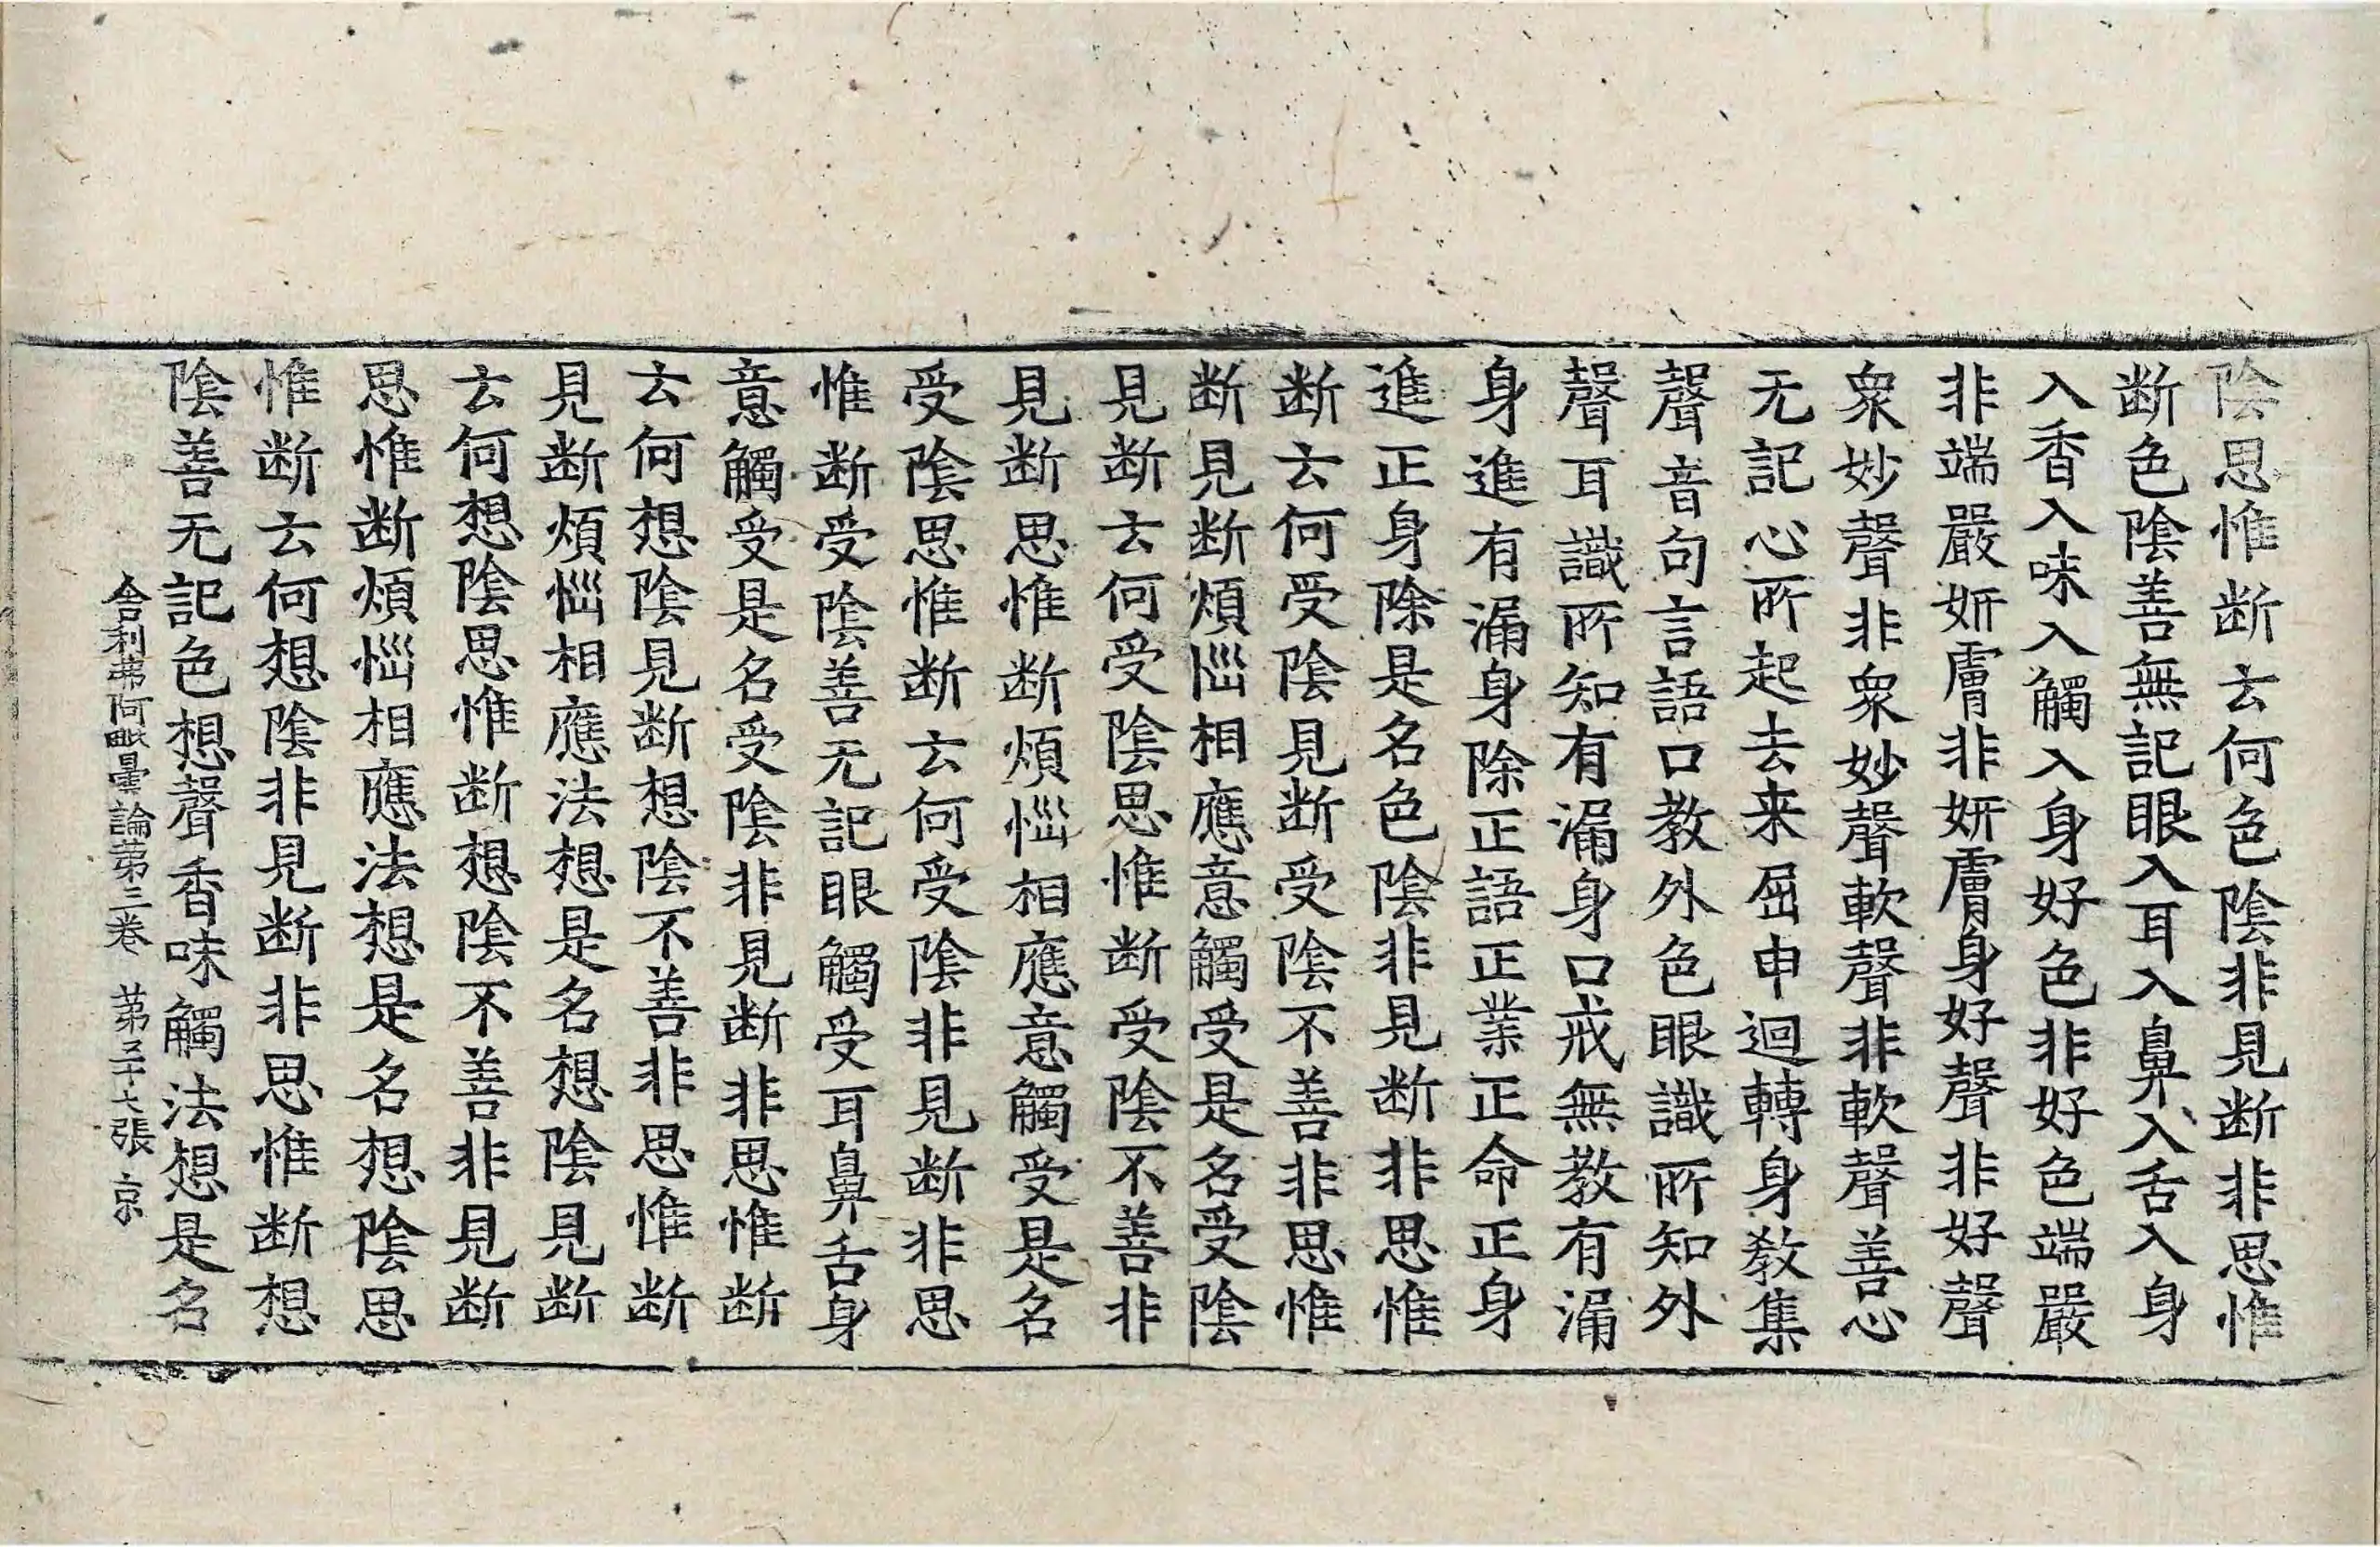 陰思惟断云何色陰非見断非思惟
断色陰善無記眼入耳入鼻入舌入身
入香入味入觸入身好色非好色端嚴
非端嚴妍膚非妍膚身好聲非好聲
衆妙聲非衆妙聲軟聲非軟聲善心
无記心所起去来屈申迴轉身教集
聲音句言語口教外色眼識所知外
聲耳識所知有漏身口戒無教有漏
身進有漏身除正語正業正命正身
進正身除是名色陰非見断非思惟
断云何受陰見断受陰不善非思惟
断見断煩惱相應意觸受是名受陰
見断云何受陰思惟断受陰不善非
見断思惟断煩惱相應意觸受是名
受陰思惟断云何受陰非見断非思
惟断受陰善无記眼觸受耳鼻舌身
意觸受是名受陰非見断非思惟断
云何想陰見断想陰不善非思惟断
見断煩惱相應法想是名想陰見断
云何想陰思惟断想陰不善非見断
思惟断煩惱相應法想是名想陰思
惟断云何想陰非見断非思惟断想
陰善无記色想聲香味觸法想是名
舍利弗阿毗曇論苐三卷 苐二十七張 京